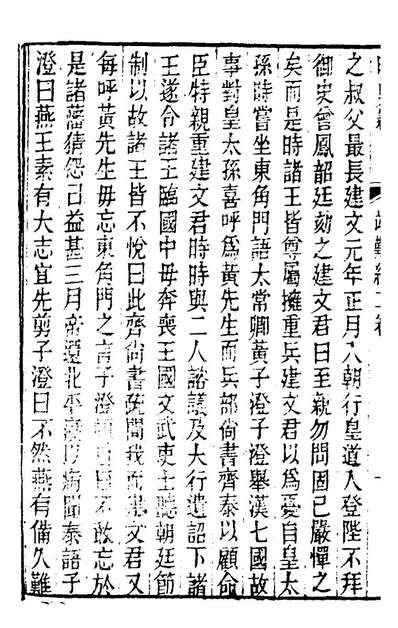 之叔父最長建文元年正月入朝行皇道入登陛不拜
御史曾鳳韶廷劾之建文君曰至親勿問固已嚴憚之
矣而是時諸王皆尊屬擁重兵建文君以為憂自皇太
孫時嘗坐東角門語太常卿黃子澄子澄舉漢七國故
事對皇太孫喜呼為黃先生而兵部尚書齊泰以顧命
臣特親重建文君時時與二人諮議及大行遺詔下諸
王遂令諸王臨國中毋奔喪王國文武吏士聽朝廷節
制以故諸王皆不悅曰此齊尚書疏間我而建文君又
每呼黃先生毋忘東角門之言子澄頓首曰不敢忘於
是諸藩猜怨已益甚三月帝還北平遂以病聞泰語子
澄曰燕王素有大志宜先剪子澄曰不然燕有備久難